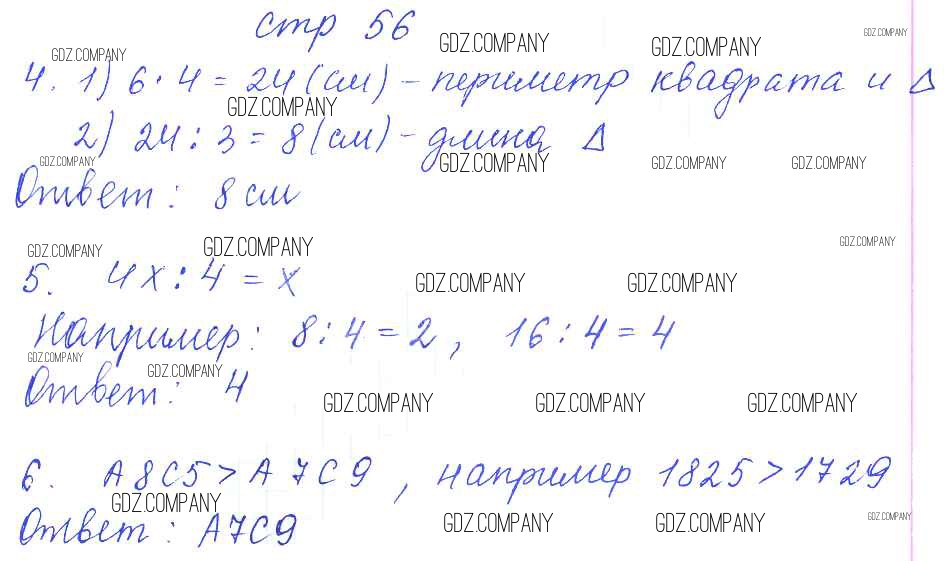 стр 56
GDZ.COMPANY GDZ.COMPANY GDZ.COMPANY GDZ.COMPANY
4. 1) 6 · 4 = 24 (см) – периметр квадрата и Δ
GDZ.COMPANY
2) 24 : 3 = 8 (см) – длина Δ
GDZ.COMPANY GDZ.COMPANY GDZ.COMPANY GDZ.COMPANY
Ответ: 8 см
GDZ.COMPANY GDZ.COMPANY GDZ.COMPANY
5. 4x : 4 = x
GDZ.COMPANY GDZ.COMPANY
Например: 8 : 4 = 2, 16 : 4 = 4
GDZ.COMPANY GDZ.COMPANY
Ответ: 4
GDZ.COMPANY GDZ.COMPANY GDZ.COMPANY
6. А8С5 > А7С9, например 1825 > 1729
GDZ.COMPANY
Ответ: А7С9
GDZ.COMPANY GDZ.COMPANY GDZ.COMPANY